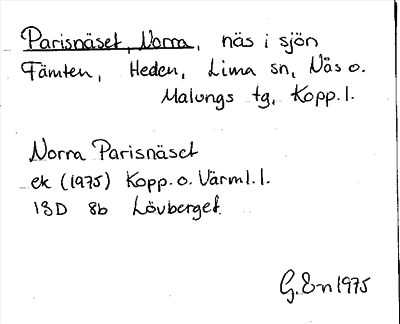 Parisnäset, Norra, näs i sjön
Fämten, Heden, Lima sn, Nås o.
Malungs tg, Kopp. l.
Norra Parisnäset
ek (1975) Kopp. o. Värml. l.
13D 8b Lövberget
G. En 1975